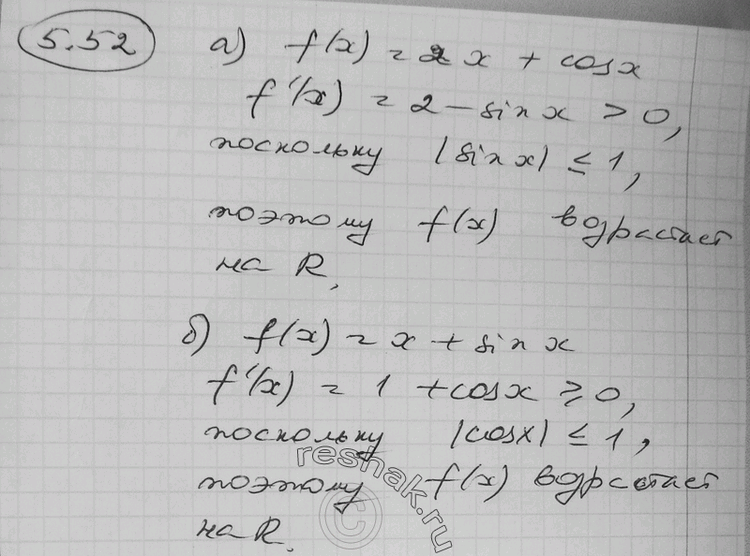 5.52 а) f(x) = 2x + cosx
f'(x) = 2 - sinx > 0,
поскольку |sinx| ≤ 1,
поэтому f(x) водрастает
на R,
б) f(x) = x + sinx
f'(x) = 1 + cosx ≥ 0,
поскольку |cosx| ≤ 1,
поэтому f(x) водрастает
на R.
reshak.ru
©